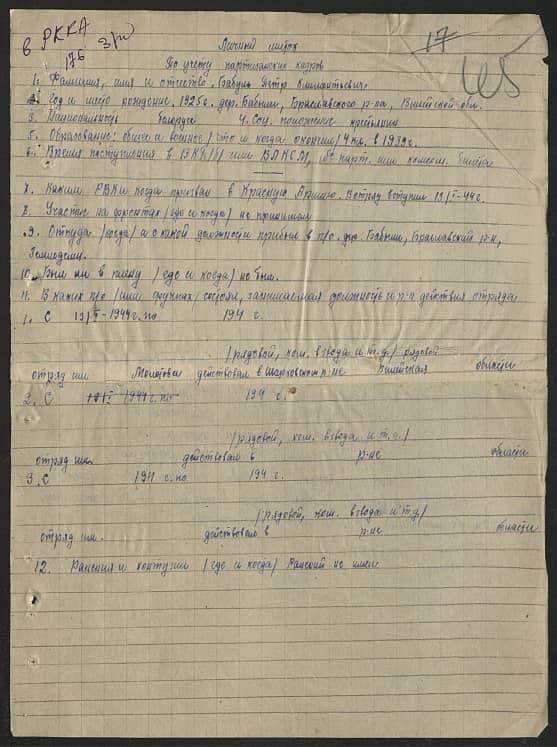 в РККА
176
17
Личный листок
По учету партизанских кадров
1. Фамилия, имя и отчество. Бабуль Петр
2. Год и место рождение. 1925 г. дер. Бабыли, Браславского р-на, Вилейской обл.
3. Национальность белорус 4. Соц. положение крестьянин
5. Образование: общее и военное / что и когда окончил / 4 кл. в 1939 г.
6. Время поступления в ВКП/б/ или ВЛКСМ, № парт. или комсом. билета
7. Каким РВК и когда призван в Красную Армию.
8. Участие на фронтах / где и когда / не принимал
9. Откуда / когда / и с какой должности прибыл в п/о. дер. Бабыли, Браславский р-н,
10. Был ли в плену / где и когда / не был.
11. В каких п/о / или группах / состоял, занимаемая должность и р-н действия отряда
1. С 19/I-1944 г. по 194 г.
/рядовой, ком. взвода и т.д./ рядовой
отряд им Молотова действовал в Шарковском р-не Вилейская области
2. С 1944 г. по 194 г.
/рядовой, ком. взвода и т.д./
отряд им. действовал в р-не области
3. С 194 г. по 194 г.
/рядовой, ком. взвода и т.д./
отряд им. действовал в р-не области
12. Ранения и контузии / где и когда / Ранений не имел